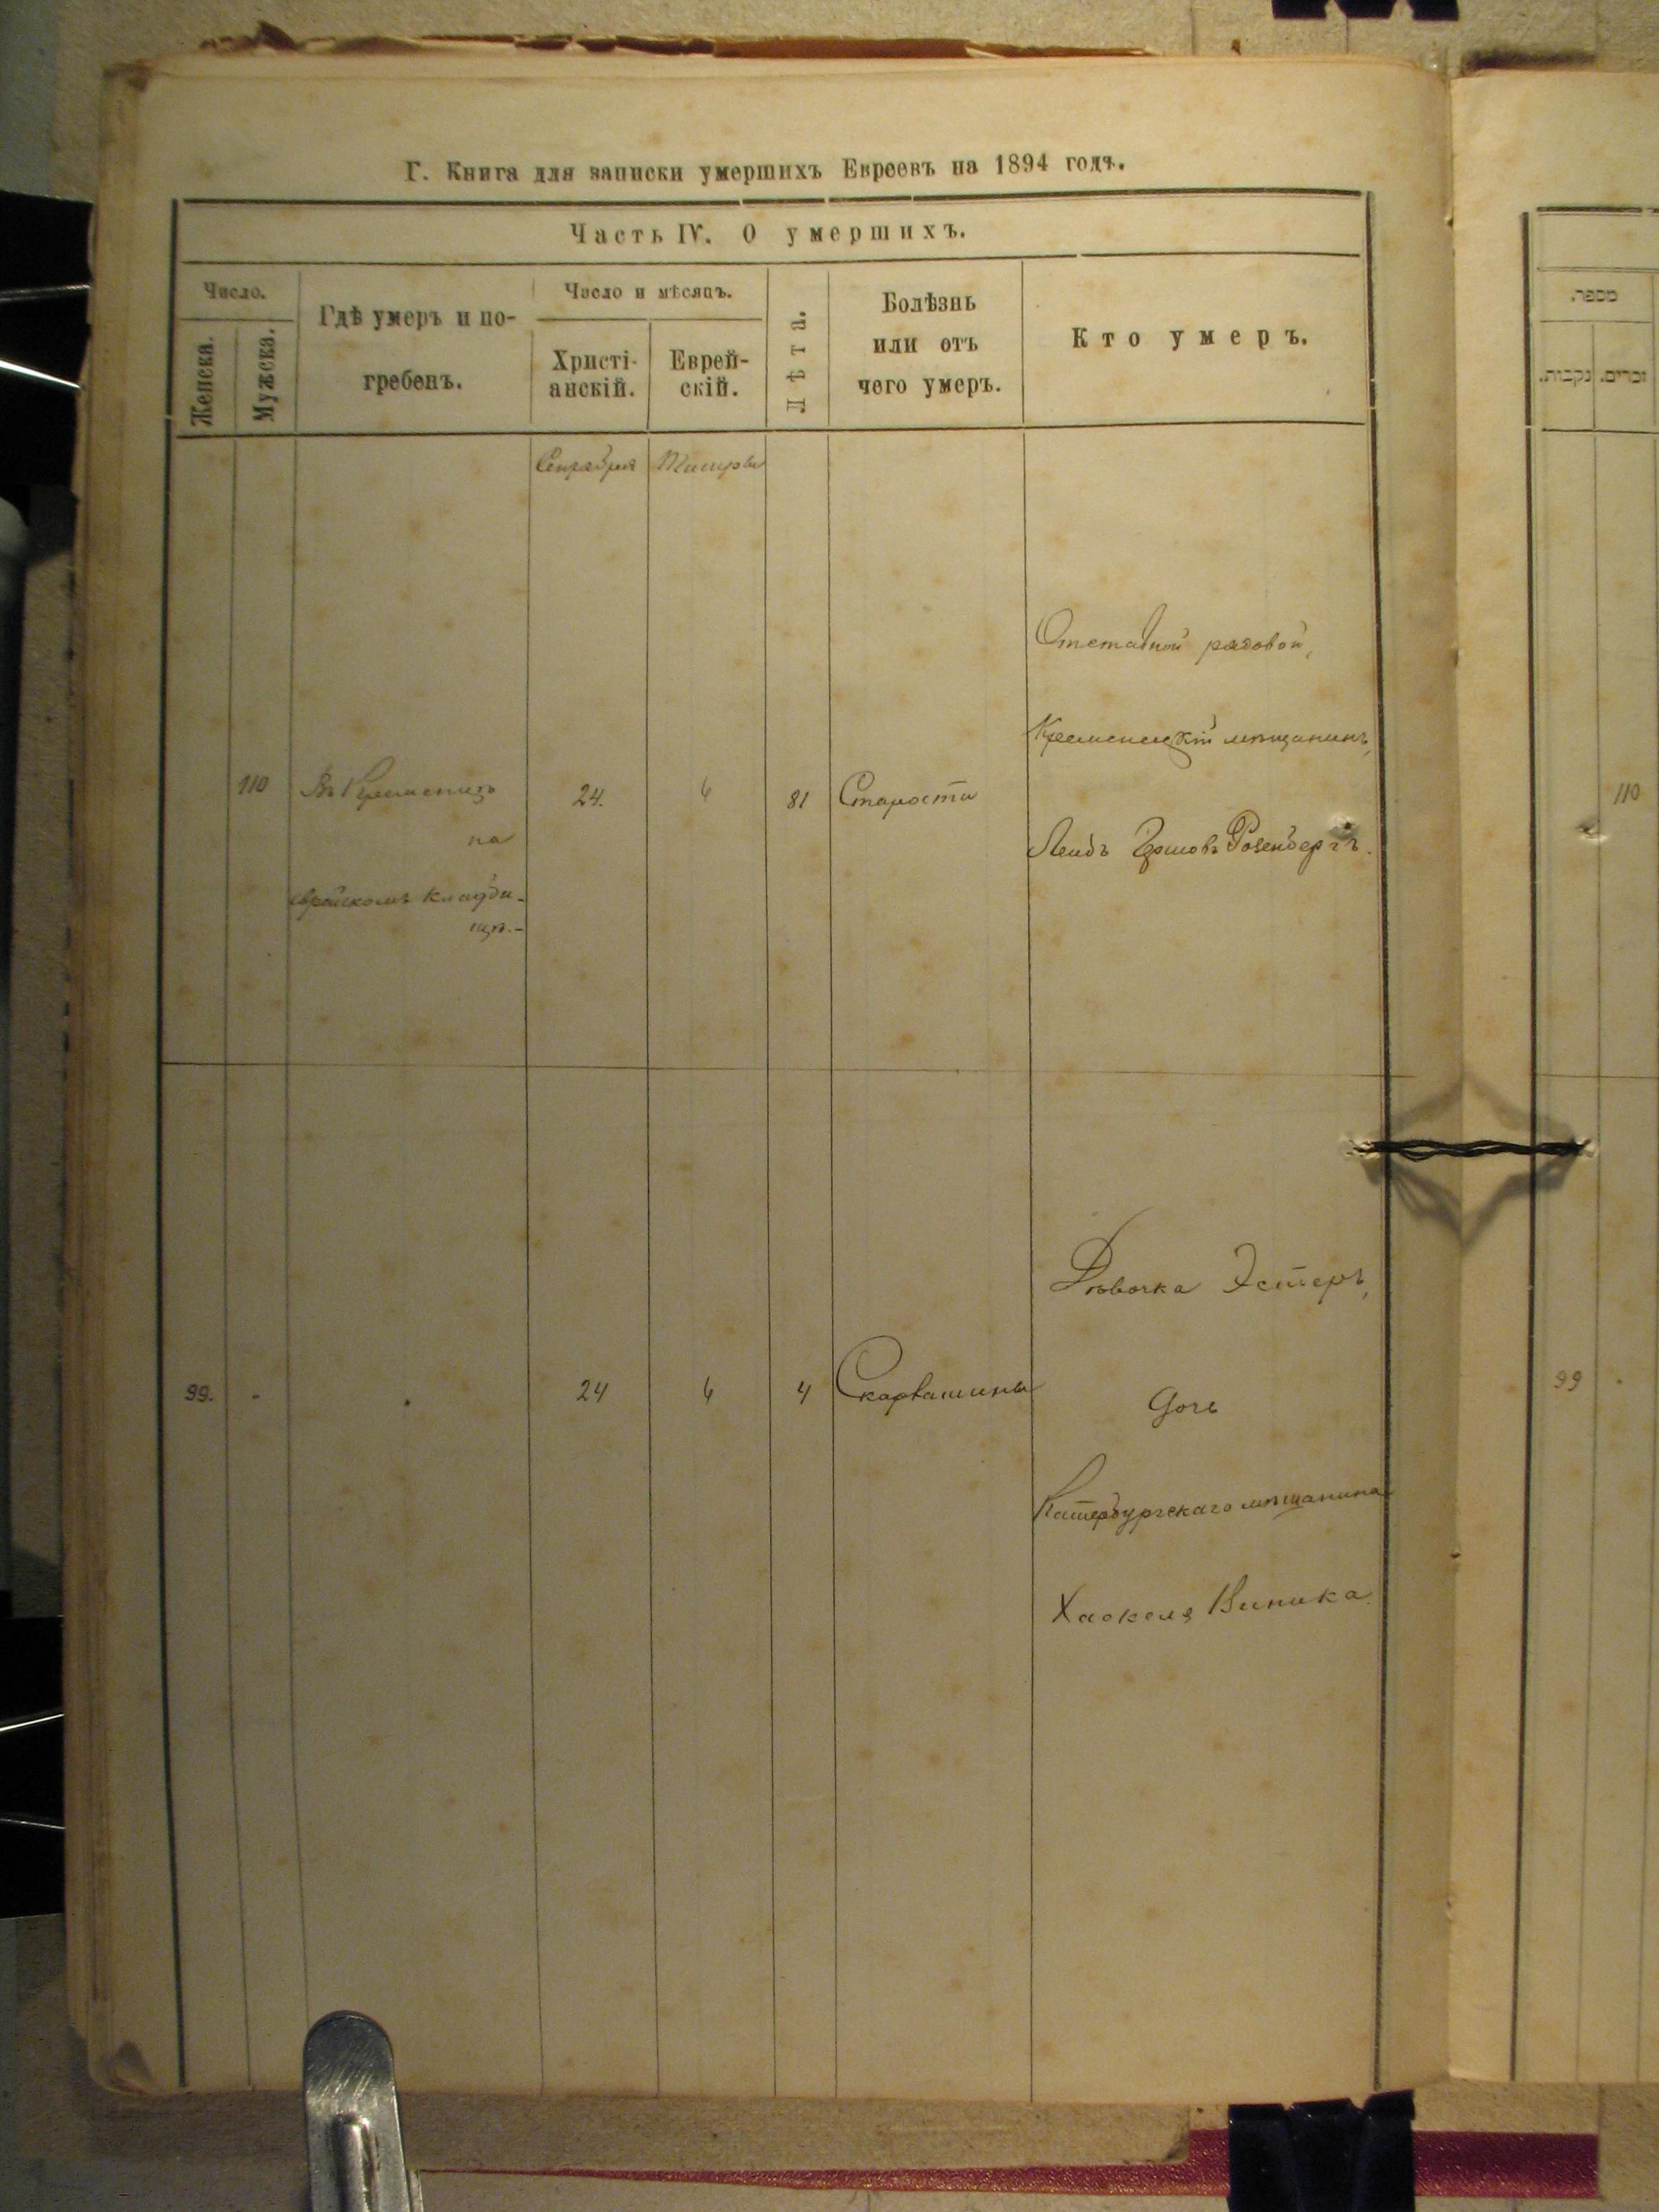 Г. Книга для записки умершихъ Евреевъ на 1894 годъ.
Часть IV. О умершихъ.
Число.
Женска.
Мужска.
Гдѣ умеръ и по-
гребенъ.
Число и мѣсяцъ.
Христі-
анскій.
Еврей-
скій.
Лѣта.
Болѣзнь
или отъ
чего умеръ.
Кто умеръ.
Сентября Тишри
Отставной рядовой,
Кременецкій мѣщанинъ,
110 Въ Кременцѣ 24. 6 81 Старости
Лейбъ Гершовъ Розенбергъ.
на
еврейскомъ кладби-
щѣ.-
Дѣвочка Эстеръ,
99. - . 24 6 4 Скарлатины
дочь
Катербургскаго мѣщанина
Хаскеля Виника.
מספר.
נקבות.
זכרים.
110
99 .